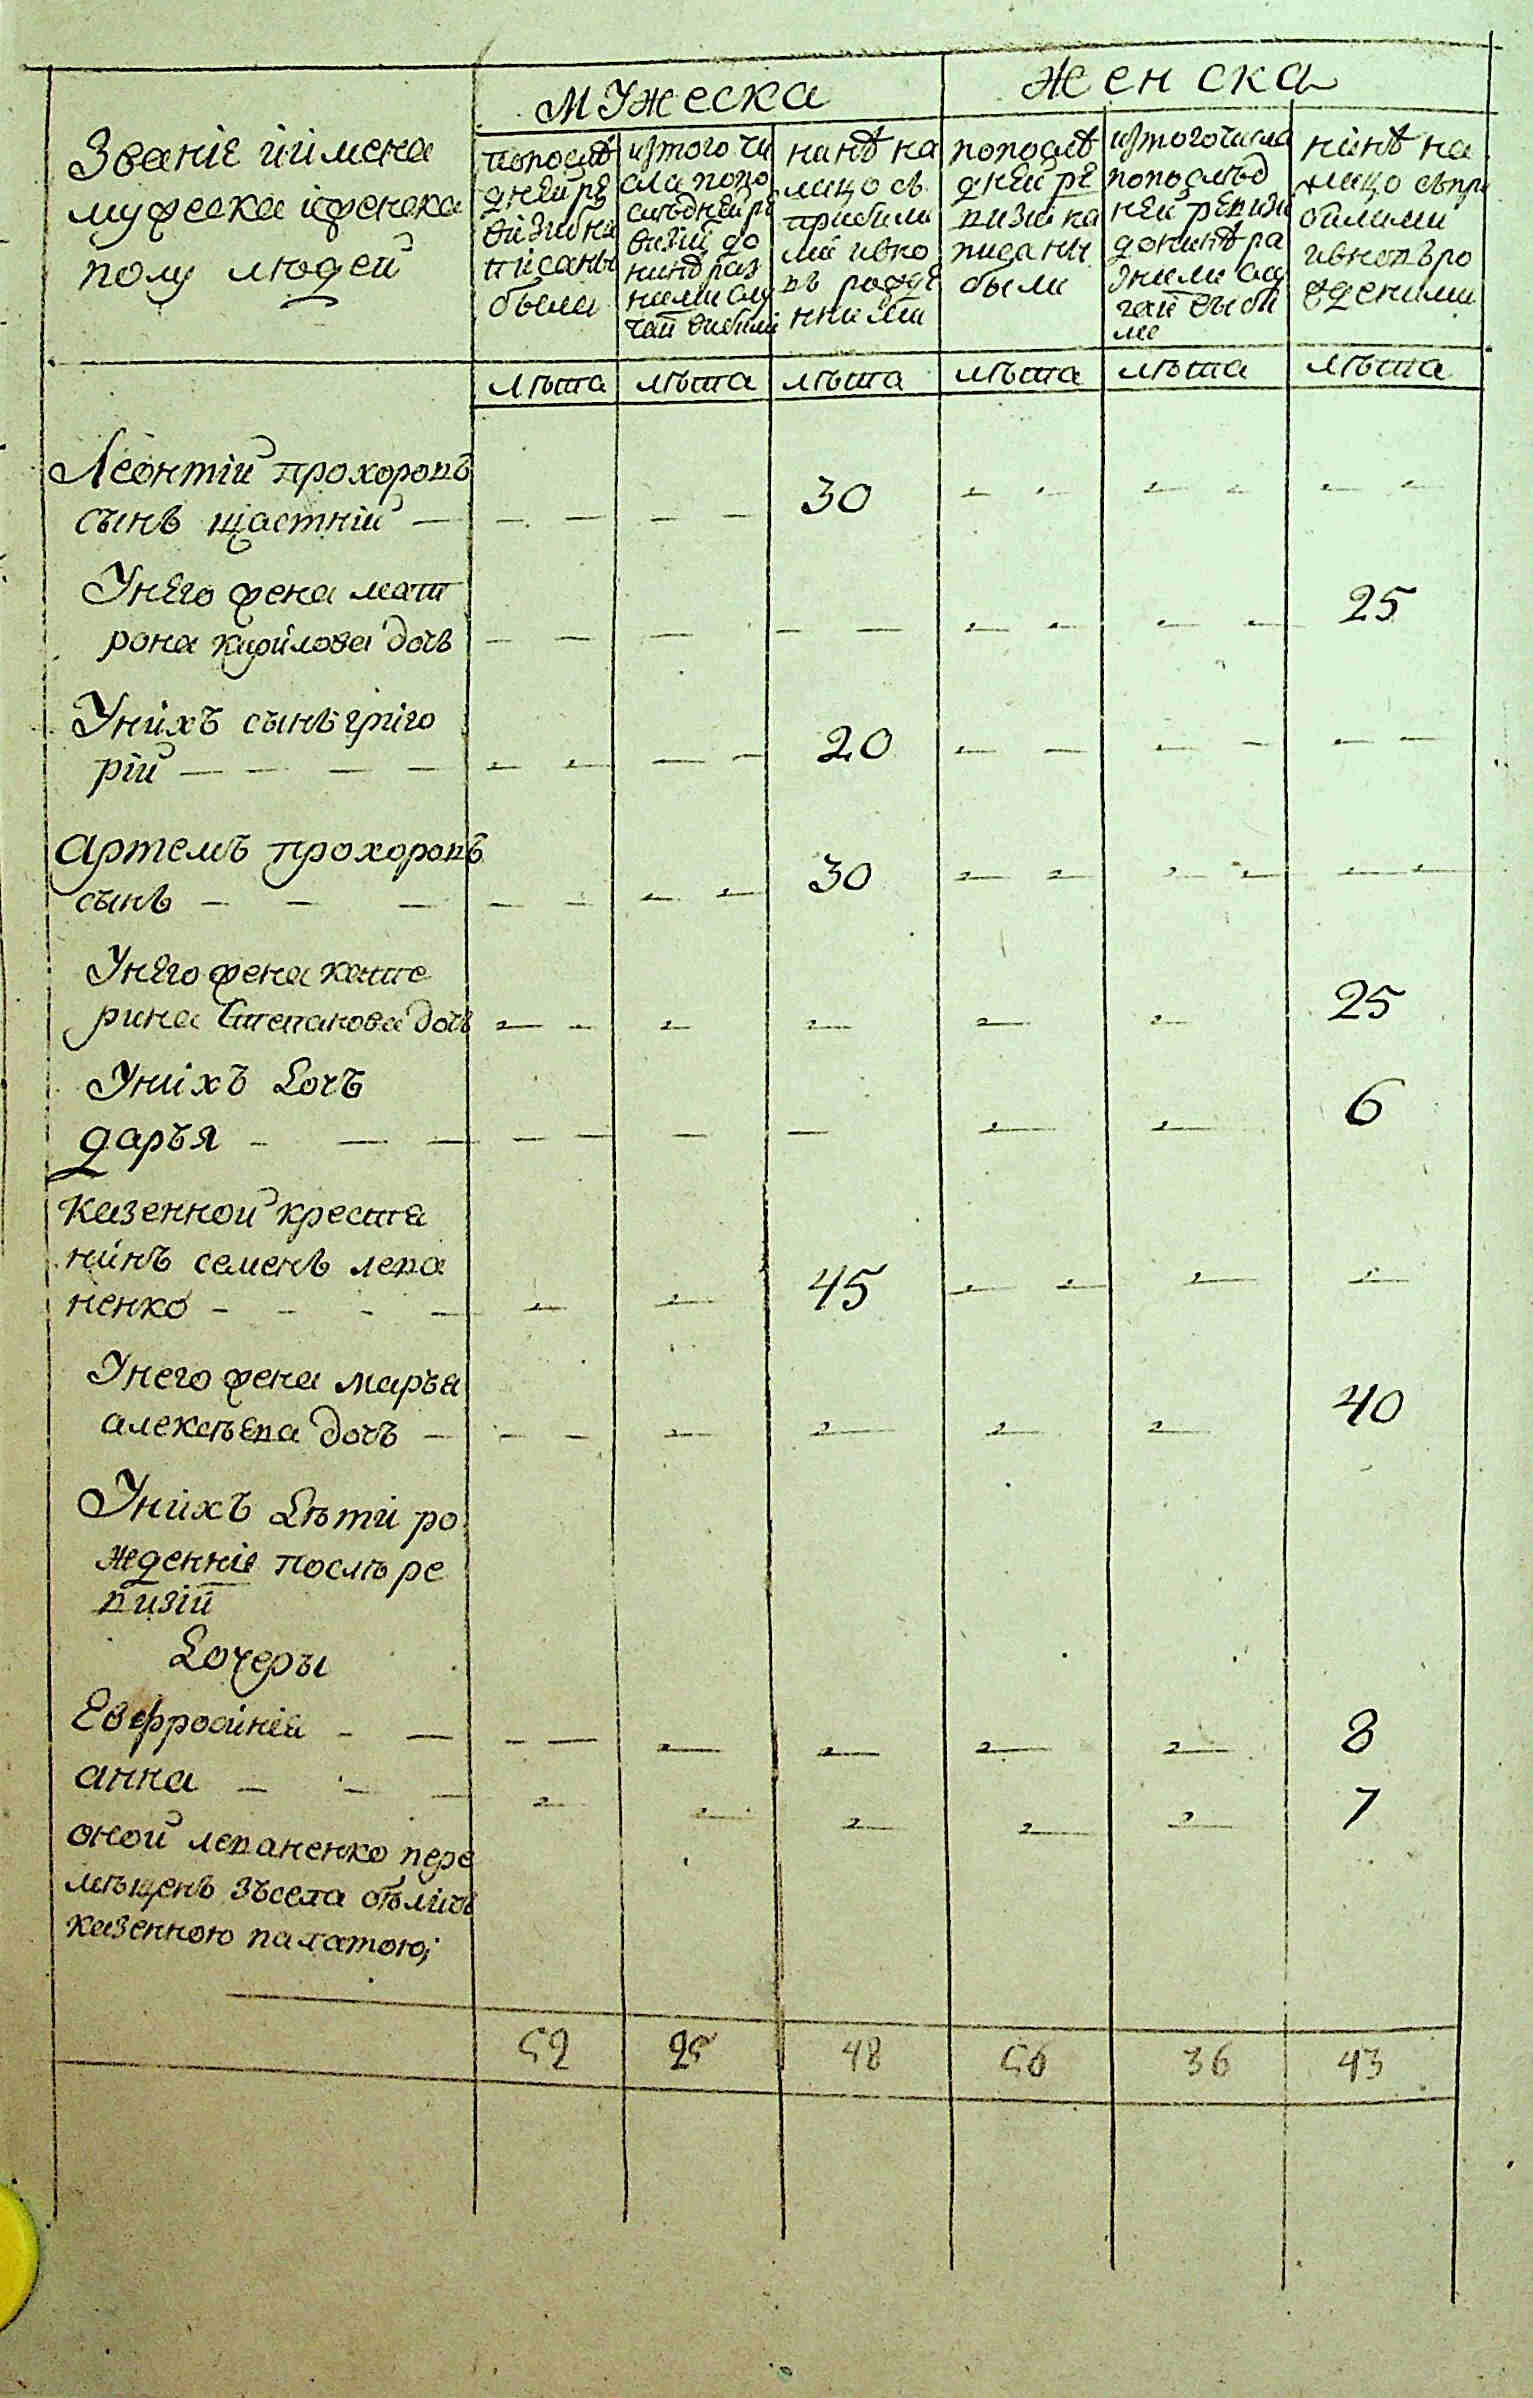 мужеска
женска
Званіе иімена
мужеска іженска
полу людей
попослѣ
дней ре
визіи на
писаны
были
изтого чи
сла попо
слѣдней ре
визіи до
нинѣ раз
ними слу
чаи вибили
нинѣ на
лицо съ
прибили
ми ивно
въ рожде
нними
попослѣ
дней ре
визіи на
писаны
были
изтогочисла
попослѣд
ней ревизи
донинѣ ра
зними слу
чаи выби
ли
нинѣ на
лицо съпри
билими
ивновъро
жденими
лѣта лѣта лѣта лѣта лѣта лѣта
Леонтій прохоровъ
сынъ щастній — 30
Унего жена мат
рона кирилова дочь 25
Унихъ сынъ григо
рій — 20
артемъ прохоровъ
сынъ — 30
Унего жена кате
рина степанова дочь 25
Унихъ дочь
дарья — 6
казенной крестя
нинъ семенъ лева
ненко — 45
Унего жена марья
алексѣева дочь — 40
Унихъ дѣти ро
жденніе послѣ ре
визій
дочеры
Евфросинія — 8
анна — 7
оной леваненко пере
мѣщенъ зъсела
казенною палатою;
52 25 48 56 36 43